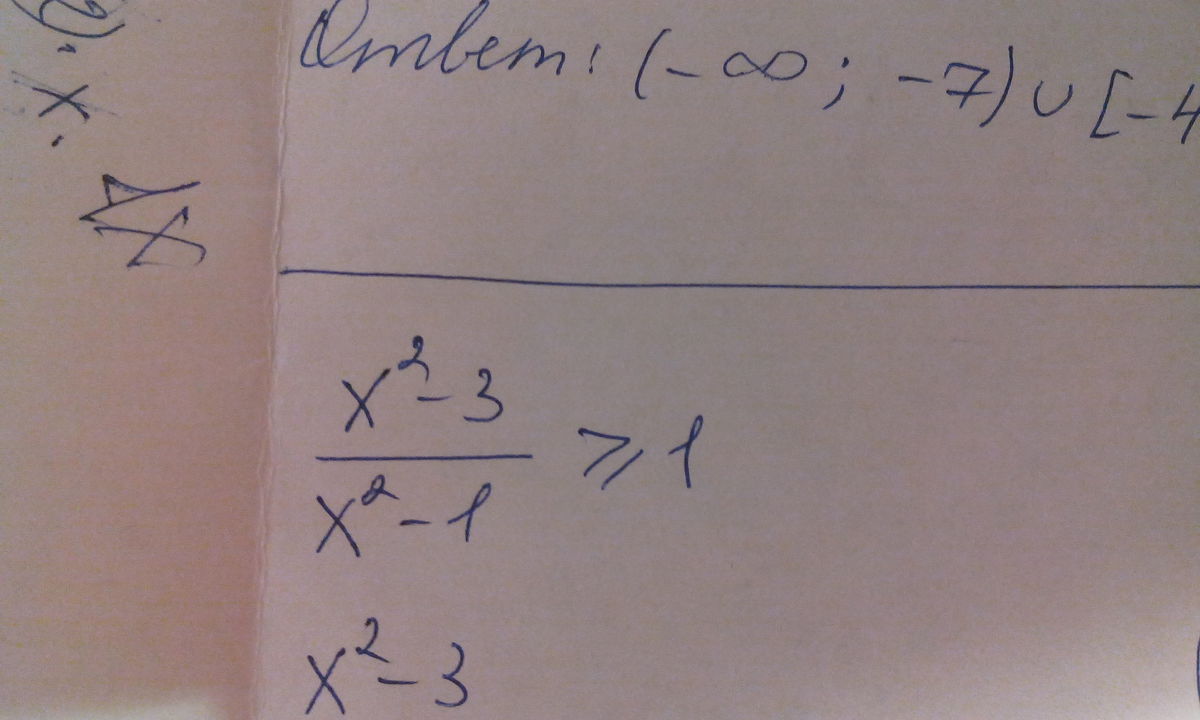 Ответ: (-∞; -7) ∪ [-4
x²-3
x²-1
⩾ 1
x²-3